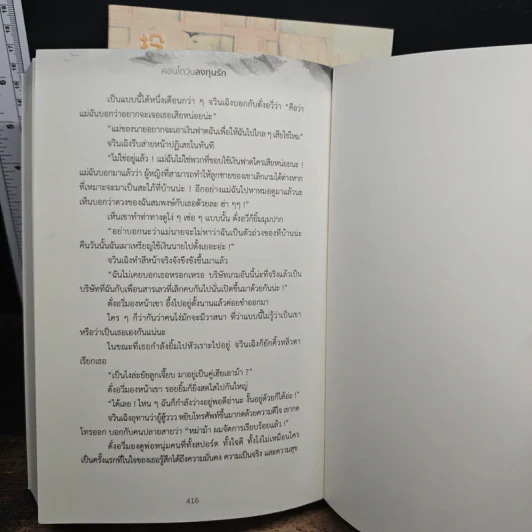 คอนโดวุ่นลงทุนรัก
เป็นแบบนี้ได้หนึ่งเดือนกว่า ๆ จวินเฉิงบอกกับตั่งอวี่ว่า "คือว่า
แม่ฉันบอกว่าอยากจะเจอเธอเสียหน่อยน่ะ"
"แม่ของนายอยากจะเอาเงินฟาดฉันเพื่อให้ฉันไปไกล ๆ เสียใช่ไหม"
จวินเฉิงรีบส่ายหน้าปฏิเสธในทันที
"ไม่ใช่อยู่แล้ว ! แม่ฉันไม่ใช่พวกที่ชอบใช้เงินฟาดใครเสียหน่อยนะ !
แม่ฉันบอกมาแล้วว่า ผู้หญิงที่สามารถทำให้ลูกชายของเขาเลิกเกมได้ต่างหาก
ที่เหมาะจะมาเป็นสะใภ้ที่บ้านน่ะ ! อีกอย่างแม่ฉันไปหาหมอดูมาแล้วนะ
เห็นบอกว่าดวงของฉันสมพงษ์กับเธอด้วยละ ฮ่า ๆๆ !"
เห็นเขาทำท่าทางดูโง่ ๆ เซ่อ ๆ แบบนั้น ตั่งอวี่ก็ยิ้มมุมปาก
"อย่าบอกนะว่าแม่นายจะไม่หาว่าฉันเป็นตัวถ่วงของที่บ้านน่ะ
คืนวันนั้นฉันเผาเหรียญใช้เงินนายไปตั้งเยอะอ่ะ !"
จวินเฉิงทำสีหน้าจริงจังขึงขังขึ้นมาแล้ว
"ฉันไม่เคยบอกเธอหรอกเหรอ บริษัทเกมอันนี้น่ะที่จริงแล้วเป็น
บริษัทที่ฉันกับเพื่อนสารเลวที่เลิกคบกันไปนั่นเปิดขึ้นมาด้วยกันน่ะ !"
ตั่งอวี่มองหน้าเขา อึ้งไปอยู่ตั้งนานแล้วค่อยขำออกมา
ใคร ๆ ก็ว่ากันว่าคนโง่มักจะมีวาสนา ที่ว่าแบบนี้ไม่รู้ว่าเป็นเขา
หรือว่าเป็นเธอเองกันแน่นะ
ในขณะที่เธอกำลังยิ้มไปหัวเราะไปอยู่ จวินเฉิงก็ยักคิ้วหลิ่วตา
เรียกเธอ
"เป็นไงล่ะยัยลูกเจี๊ยบ มาอยู่เป็นคู่เสี่ยเอาม้า ?"
ตั่งอวี่มองหน้าเขา รอยยิ้มก็ยิ่งสดใสไปกันใหญ่
"ได้เลย ! ไหน ๆ ฉันก็กำลังว่างอยู่พอดีอ่านะ งั้นอยู่ด้วยก็ได้อ่ะ !"
จวินเฉิงอุทานว่ากู้ฮู้ววว หยิบโทรศัพท์ขึ้นมากดด้วยความดีใจ เขากด
โทรออก บอกกับคนปลายสายว่า "หม่าม้า ผมจัดการเรียบร้อยแล้ว !"
ตั่งอวี่มองดูพ่อหนุ่มคนที่ทั้งสปอร์ต ทั้งใจดี ทั้งโง่ไม่เหมือนใคร
เป็นครั้งแรกที่ในใจของเธอรู้สึกได้ถึงความมั่นคง ความเป็นจริง และความสุข
416